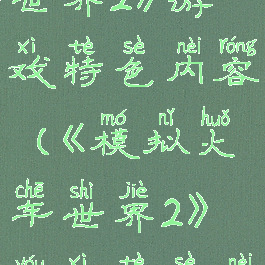 世界2》游
xì tè sè nèi róng
戏特色内容
mó nǐ huǒ
(《模拟火
chē shì jiè
车世界2》
yóu xì tè sè nèi